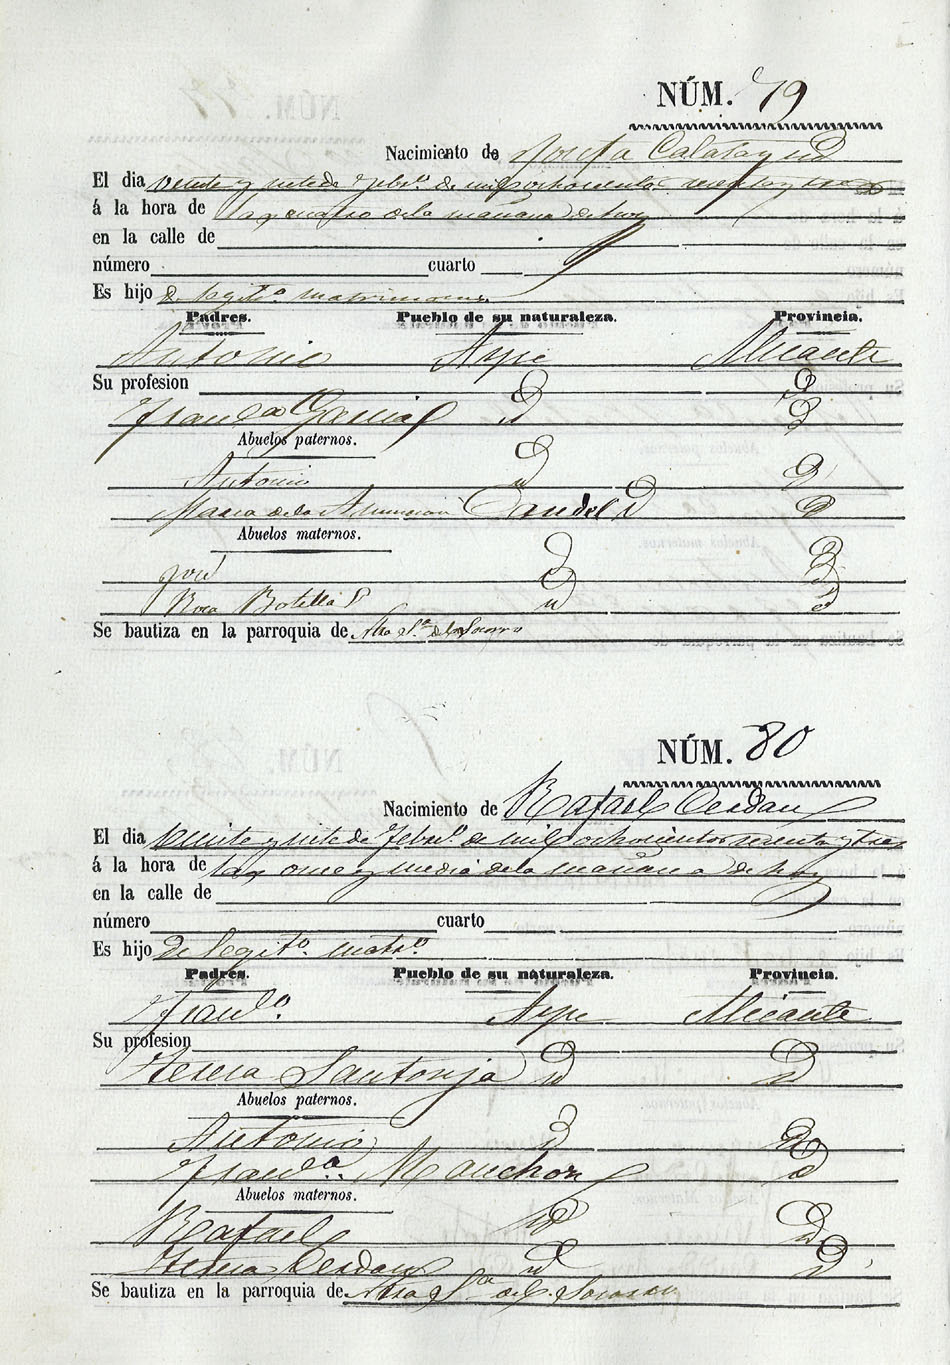 NÚM. 79
Nacimiento de Josefa Calatayud
El dia veinte y siete de Febr.º de mil ochocientos sesenta y tres
á la hora de las cuatro de la mañana de hoy
en la calle de
número cuarto
Es hijo de legit.º matrimonio
Padres. Pueblo de su naturaleza. Provincia.
Antonio Aspe Alicante
Su profesion
Fran.ca Garcia id id
Abuelos paternos.
Antonio id id
Maria de la Asuncion id id
Abuelos maternos.
José id id
Rosa Botella id id
Se bautiza en la parroquia de Ntra Sª del Socorro
NÚM. 80
Nacimiento de Rafael Cerdan
El dia veinte y siete de Febr.º de mil ochocientos sesenta y tres
á la hora de las once y media de la mañana de hoy
en la calle de
número cuarto
Es hijo de legit.º matr.º
Padres. Pueblo de su naturaleza. Provincia.
Fran.co Aspe Alicante
Su profesion
Teresa Santonja id id
Abuelos paternos.
Antonio id id
Fran.ca Manchon id
Abuelos maternos.
Rafael id id
Teresa Cerdan id id
Se bautiza en la parroquia de Ntra Sª del Socorro